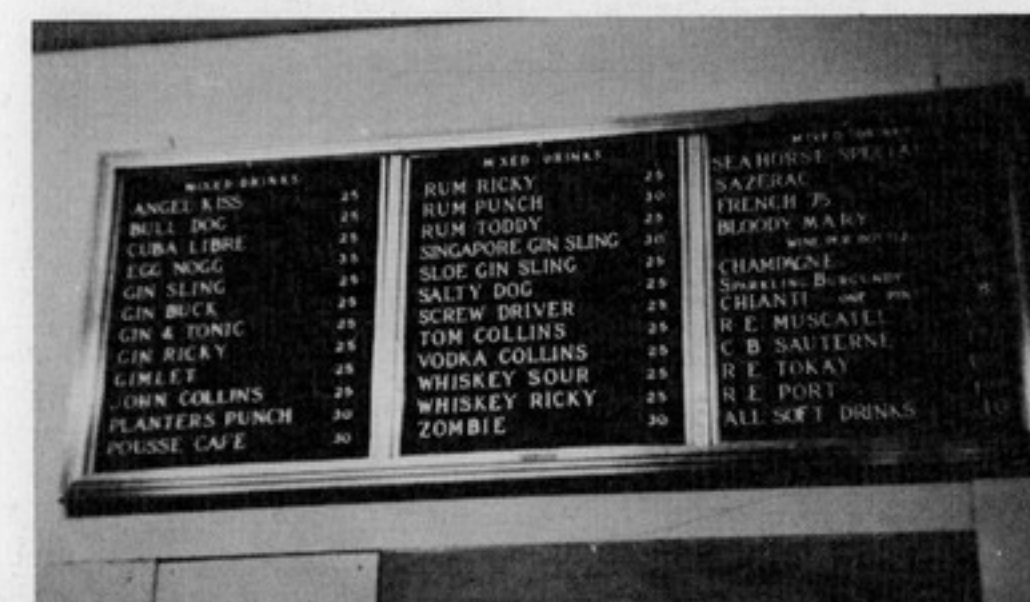 MIXED DRINKS
ANGEL KISS 25
BULL DOG 25
CUBA LIBRE 25
EGG NOGG 35
GIN SLING 25
GIN BUCK 25
GIN & TONIC 25
GIN RICKY 25
GIMLET 25
JOHN COLLINS 25
PLANTERS PUNCH 30
POUSSE CAFE 30
MIXED DRINKS
RUM RICKY 25
RUM PUNCH 30
RUM TODDY 25
SINGAPORE GIN SLING 30
SLOE GIN SLING 25
SALTY DOG 25
SCREW DRIVER 25
TOM COLLINS 25
VODKA COLLINS 25
WHISKEY SOUR 25
WHISKEY RICKY 25
ZOMBIE 30
MIXED DRINKS
SEAHORSE SPECIAL
SAZERAC
FRENCH 75
BLOODY MARY
WINE PER BOTTLE
CHAMPAGNE
SPARKLING BURGUNDY
CHIANTI
R E MUSCATEL
C B SAUTERNE
R E TOKAY
R E PORT
ALL SOFT DRINKS 10